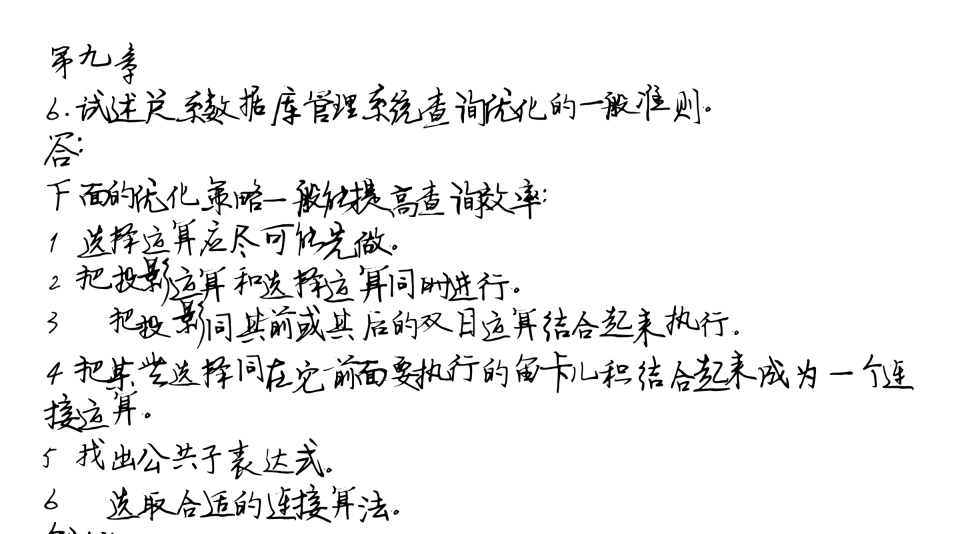 第九章
6.试述关系数据库管理系统查询优化的一般准则。
答:
下面的优化策略一般能提高查询效率:
1 选择运算应尽可能先做。
2 把投影运算和选择运算同时进行。
3 把投影同其前或其后的双目运算结合起来执行.
4 把某些选择同在它前面要执行的笛卡儿积结合起来成为一个连
接运算。
5 找出公共子表达式.
6 选取合适的连接算法。